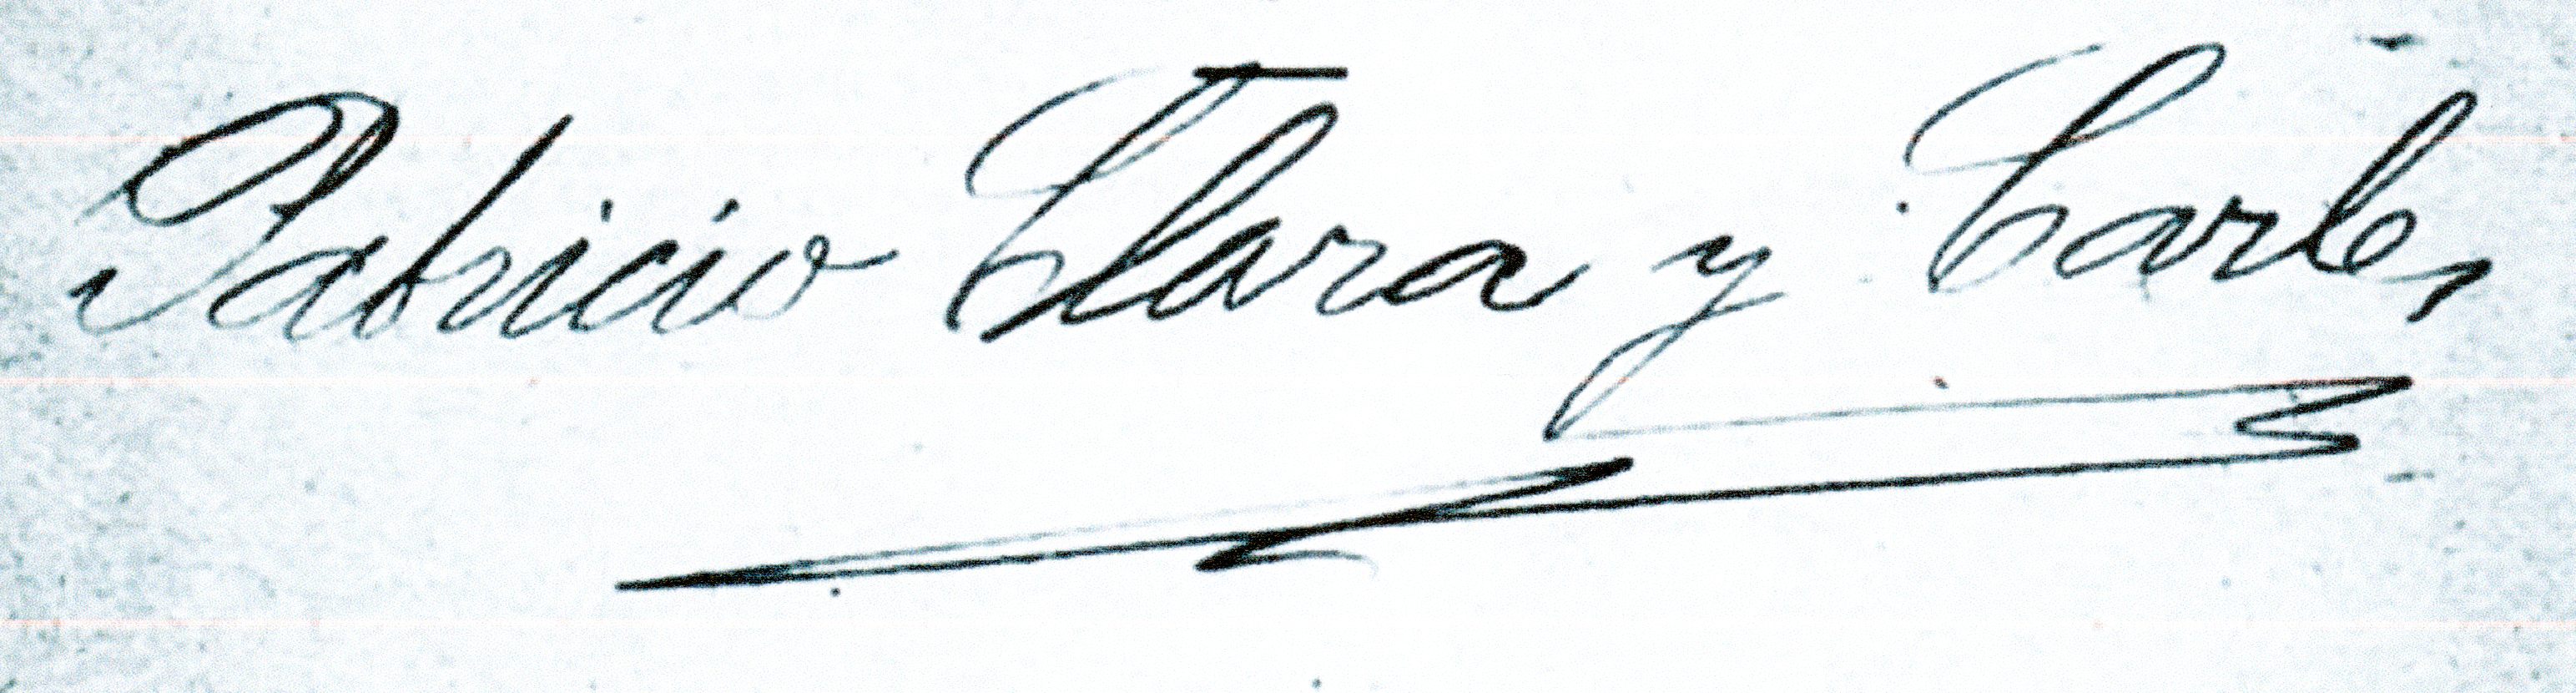 Patricio Clara y Carles